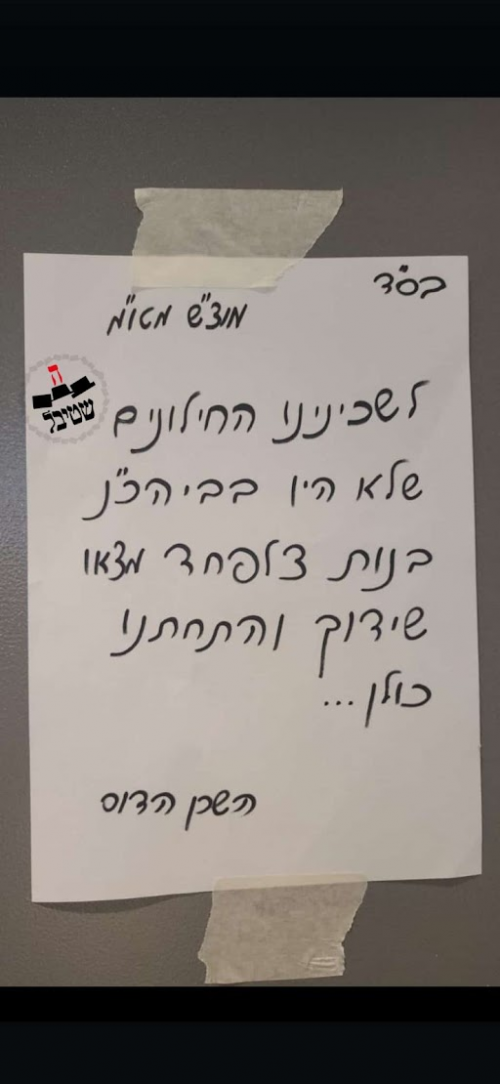 בס"ד
מוצ"ש מטו"מ
ה
שטיבל
לשכינינו החילונים
שלא היו בבי הכ"נ
בנות צלפחד מצאו
שידוך והתחתנו
כולן...
השכן הדוס